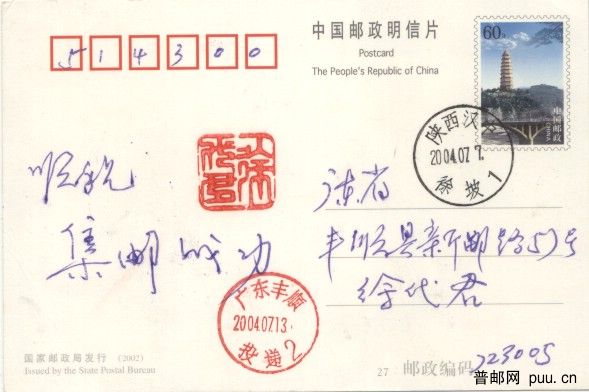 514300
中国邮政明信片
Postcard
The People's Republic of China
60分
中国邮政
CHINA
陕西汉
2004.07.7.
坡1
顺祝
集邮成功
广东省
丰顺县新邮路51号
徐代君
广东丰顺
2004.07.13
投递2
国家邮政局发行 (2002)
Issued by the State Postal Bureau
27
邮政编码
723005
普邮网 puu.cn